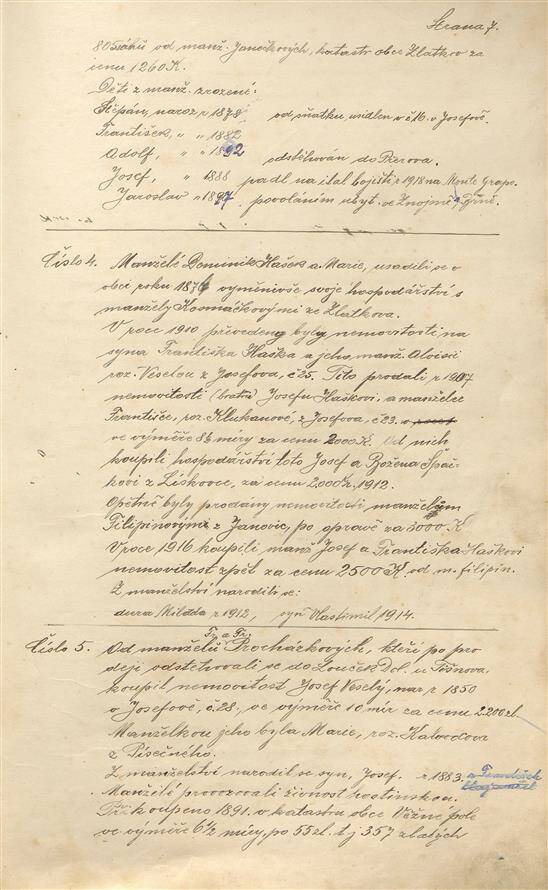 Strana 7.
805 sáhů od manž. Janečkových, katastr obce Zlatkov za
cenu 1260 K.
Děti z manž. zrozené:
Štěpán, naroz. r 1878 od sňatku usídlen v č 16. v Josefově.
František, " " 1882
Adolf, " " 1892 odstěhován do Přerova.
Josef, " 1888 padl na ital. bojišti r 1918 na Monte Grape.
Jaroslav " 1897, povoláním ubyt. ve Znojmě,
Číslo 4. Manželé Dominik Hašek a Marie, usadili se v
obci roku 1876 vyměnivše svoje hospodářství s
manžely Kosmáčkovými ze Zlatkova.
V roce 1910 převedeny byly nemovitosti na
syna Františka Haška a jeho manž. Aloisii
roz. Veselou z Josefova, č 25. Tito prodali r 1907
nemovitosti (bratru) Josefu Haškovi, a manželce
Františce, roz. Klukanové, z Josefova, č 23.
ve výměře 8½ míry za cenu 2000 K. Od nich
koupili hospodářství toto Josef a Božena Špač-
kovi z Lískovce, za cenu 2000 K. 1912.
Opětně byly prodány nemovitosti manželům
Filipinovým z Janovic, po opravě za 3000 K
V roce 1916 koupili manž Josef a Františka Haškovi
nemovitost zpět za cenu 2500 K. od m. Filipin.
Z manželství narodili se:
dcera Milada r 1912, syn Vlastimil 1914.
Číslo 5. Od manželů Fr. a Fr. Procházkových, kteří po pro
deji odstěhovali se do Louček Dol. u Tišnova,
koupil nemovitost Josef Veselý, nar. r 1850
v Josefově, č. 28., ve výměře 10 mír za cenu 2.200 zl.
Manželkou jeho byla Marie, roz. Kalvodova
z Písečného.
Z manželství narodil se syn, Josef. r 1883. a František
Manželé provozovali živnost hostinskou.
Při koupeno 1891. v katastru obce Věžné pole
ve výměře 6½ míry, po 55 zl. tj 357 zlatých